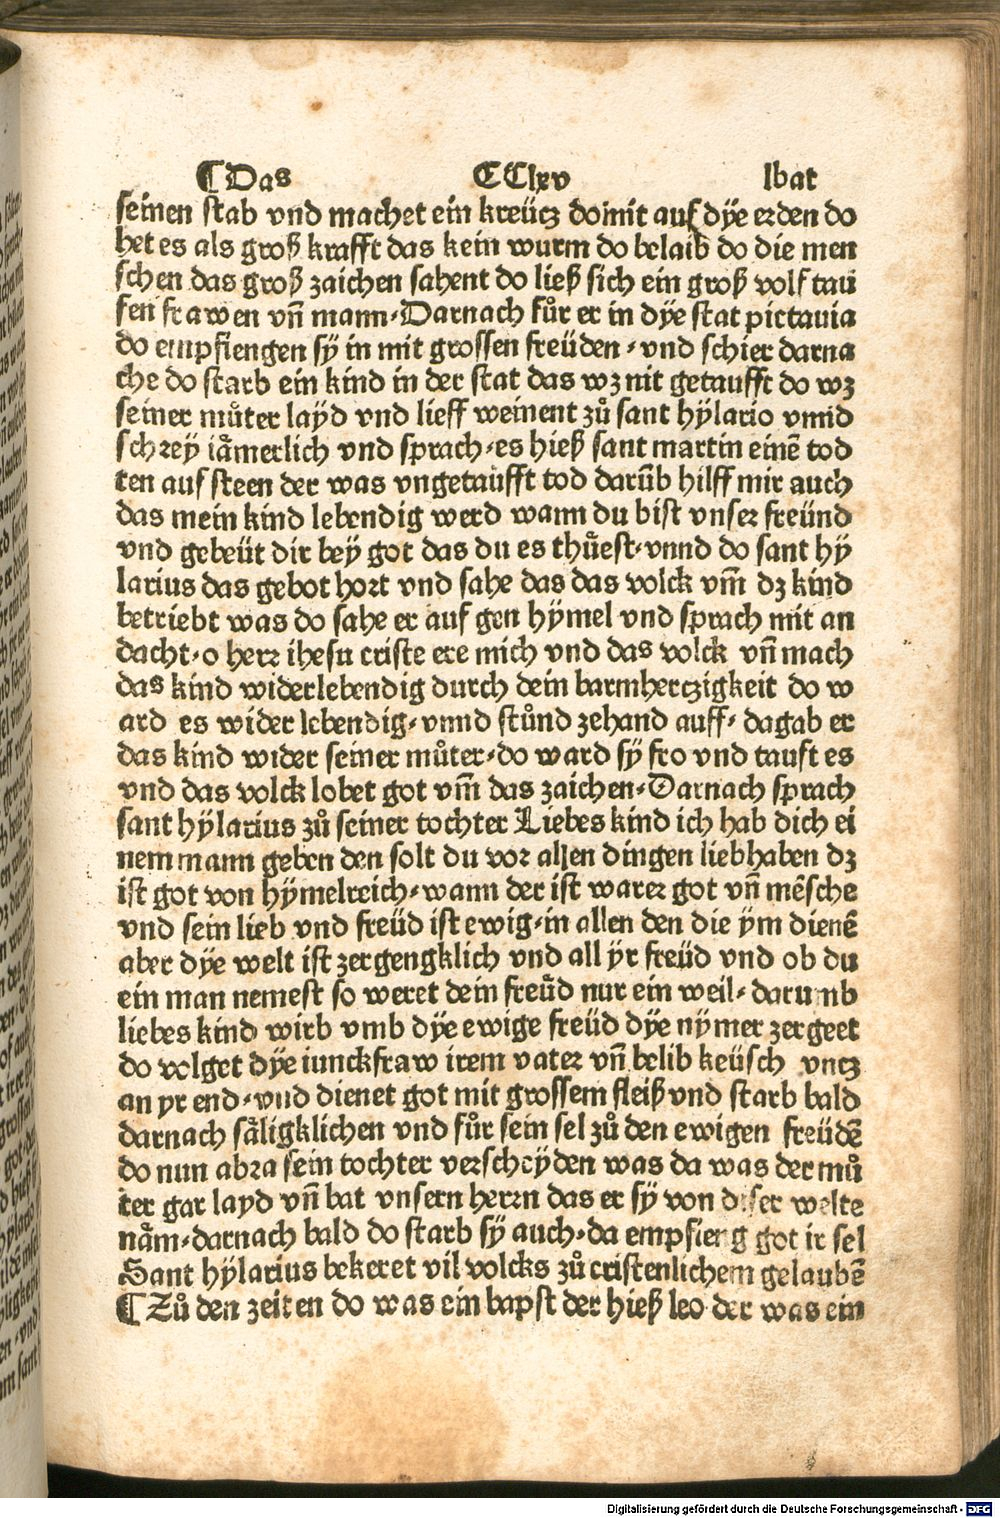 ¶Das CClxv lbat
seinen stab vnd machet ein kreütz domit auf dÿe erden do
het es als groß krafft das kein wurm do belaib do die men
schen das groß zaichen sahent do ließ sich ein groß volk tau
fen frawen vñ mann·Darnach fůr er in dÿe stat pictauia
do empfiengen sÿ in mit grossen freüden·vnd schier darna
che do starb ein kind in der stat das wz nit getaufft do wz
seiner můter laÿd vnd lieff weinent zů sant hÿlario vnnd
schreÿ iämerlich vnd sprach·es hieß sant martin einē tod
ten auf steen der was vngetaufft tod darüb hilff mir auch
das mein kind lebendig werd wann du bist vnser freünd
vnd gebeüt dir beÿ got das du es thüest·vnnd do sant hÿ
larius das gebot hort vnd sahe das das volck vm̄ dz kind
betriebt was do sahe er auf gen hÿmel vnd sprach mit an
dacht·o herr ihesu criste ere mich vnd das volck vñ mach
das kind widerlebendig durch dein barmhertzigkeit do w
ard es wider lebendig·vnnd stůnd zehand auff·dagab er
das kind wider seiner můter·do ward sÿ fro vnd tauft es
vnd das volck lobet got vm̄ das zaichen·Darnach sprach
sant hÿlarius zů seiner tochter Liebes kind ich hab dich ei
nem mann geben den solt du vor allen dingen liebhaben dz
ist got von hÿmelreich·wann der ist warer got vñ mēsche
vnd sein lieb vnd freüd ist ewig·in allen den die ÿm dienē
aber dÿe welt ist zergengklich vnd all ÿr freüd vnd ob du
ein man nemest so weret dein freüd nur ein weil·darumb
liebes kind wirb vmb dÿe ewige freüd dÿe nÿmer zergeet
do volget dÿe iunckfraw irem vater vñ belib keüsch vntz
an yr end·vnd dienet got mit grossem fleiß vnd starb bald
darnach säligklichen vnd fůr sein sel zů den ewigen freüdē
do nun abra sein tochter verscheÿden was da was der mů
ter gar layd vñ bat vnsern herrn das er sÿ von diser welte
näm·darnach bald do starb sÿ auch·da empfieng got ir sel
Sant hÿlarius bekeret vil volcks zů cristenlichem gelaubē
¶Zů den zeiten do was ein bapst der hieß leo der was ein
Digitalisierung gefördert durch die Deutsche Forschungsgemeinschaft - DFG